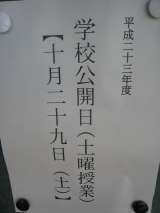 平成二十三年度
学校公開日（土曜授業）
【十月二十九日（土）】